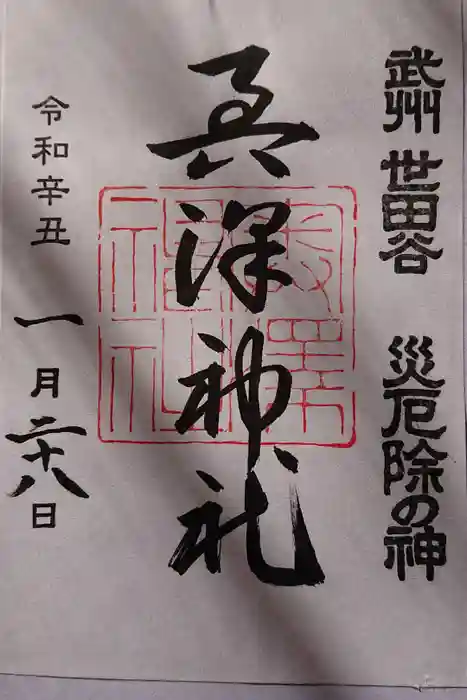 武州 世田谷 災厄除の神
奥澤神社
令和辛丑 一月二十八日